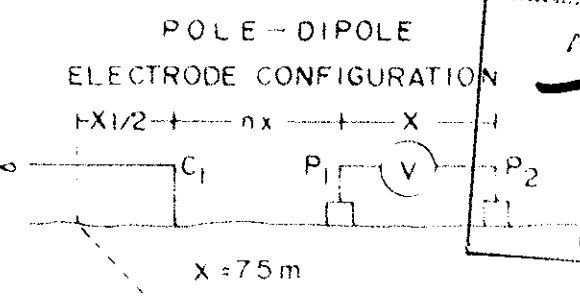 POLE-DIPOLE
ELECTRODE CONFIGURATION
X1/2 nx X
∞ C1 P1 V P2
X = 75 m